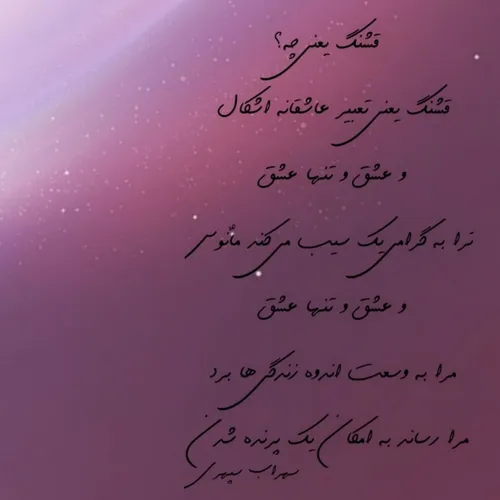 قشنگ یعنی چه؟
قشنگ یعنی تعبیر عاشقانه اشکال
و عشق و تنها عشق
ترا به گرامی یک سیب می‌کند مأنوس
و عشق و تنها عشق
مرا به وسعت اندوه زندگی ها برد
مرا رساند به امکان یک پرنده شدن
سهراب سپهری